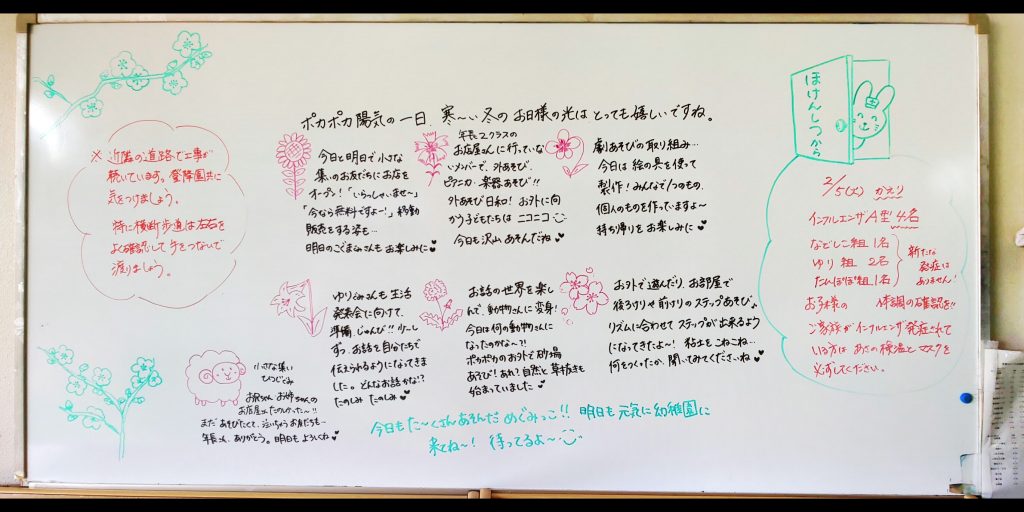 ポカポカ陽気の一日、寒〜い冬のお日様の光はとっても嬉しいですね。
※近隣の道路で工事が
続いています。登降園共に
気をつけましょう。
特に横断歩道は左右を
よく確認して手をつないで
渡りましょう。
今日と明日で小さな
集いのお友だちにお店を
オープン！「いらっしゃいませ〜」
「今なら無料ですよー!」移動
販売をする姿も…
明日のごまさんもお楽しみに♥
年長2クラスの
お店屋さんに行っていな
いメンバーで、外あそび、
ピアニカ・楽器あそび!!
外あそび日和! お外に向
かう子どもたちは ニコニコ
今日も沢山あそんだね♥
劇あそびの取り組み…
今日は絵の具を使って
製作！みんなで1つのもの、
個人のものを作っていますよ〜
持ち帰りをお楽しみに♥
ゆりぐみさんも生活
発表会に向けて、
準備、じゅんび!! 少〜し
ずつ、お話を自分たちで
伝えられるようになってきま
した。どんなお話かな!?
たのしみ たのしみ♥
お話の世界を楽し
んで、動物さんに変身!
今日は何の動物さんに
なったのかな〜?!
ポカポカのお外で砂場
あそび! あれ？自然と草抜きも
始まっていました♥
お外で遊んだり、お部屋で
後ろ走りや前走りのステップあそび♪
リズムに合わせてステップが出来るよう
になってきたよ〜! 粘土をこねこね…
何をつくったか、聞いてみてくださいね♥
小さな集い
ひつじぐみ
お兄ちゃん お姉ちゃんの
お店屋さんたのしかった〜!!
まだあそびたくて、泣いちゃうお友だちも…
年長さん、ありがとう。明日もよろしくね♥
今日もた〜くさんあそんだ めぐみっこ!! 明日も元気に幼稚園に
来てね〜! 待ってるよ〜
ほけんしつから
2/5(火) かえり
インフルエンザA型 4名
なでしこ組 1名
ゆり組 2名
たんぽぽ組 1名
新たな
発症は
ありません!
お子様の 体調の確認を!!
ご家族がインフルエンザ発症されて
いる方は あさの検温とマスクを
必ずしてください。